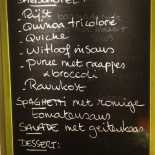 - Rijst
- Quinoa tricolore
- Quiche
- Witloof in saus
- Puree met raapjes
& broccoli
- Rauwkost
SPAGHETTI met romige
tomatensaus
SALADE met geitenkaas
DESSERT: